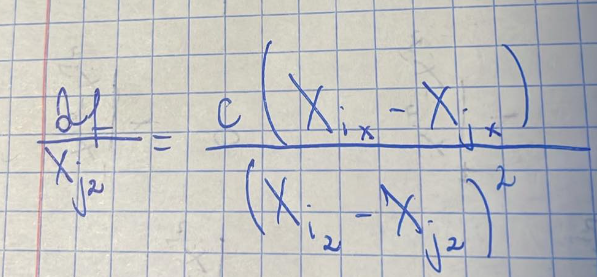 ∂f/x_{j_2} = c(X_{i_x} - X_{j_x})/(X_{i_2} - X_{j_2})^2